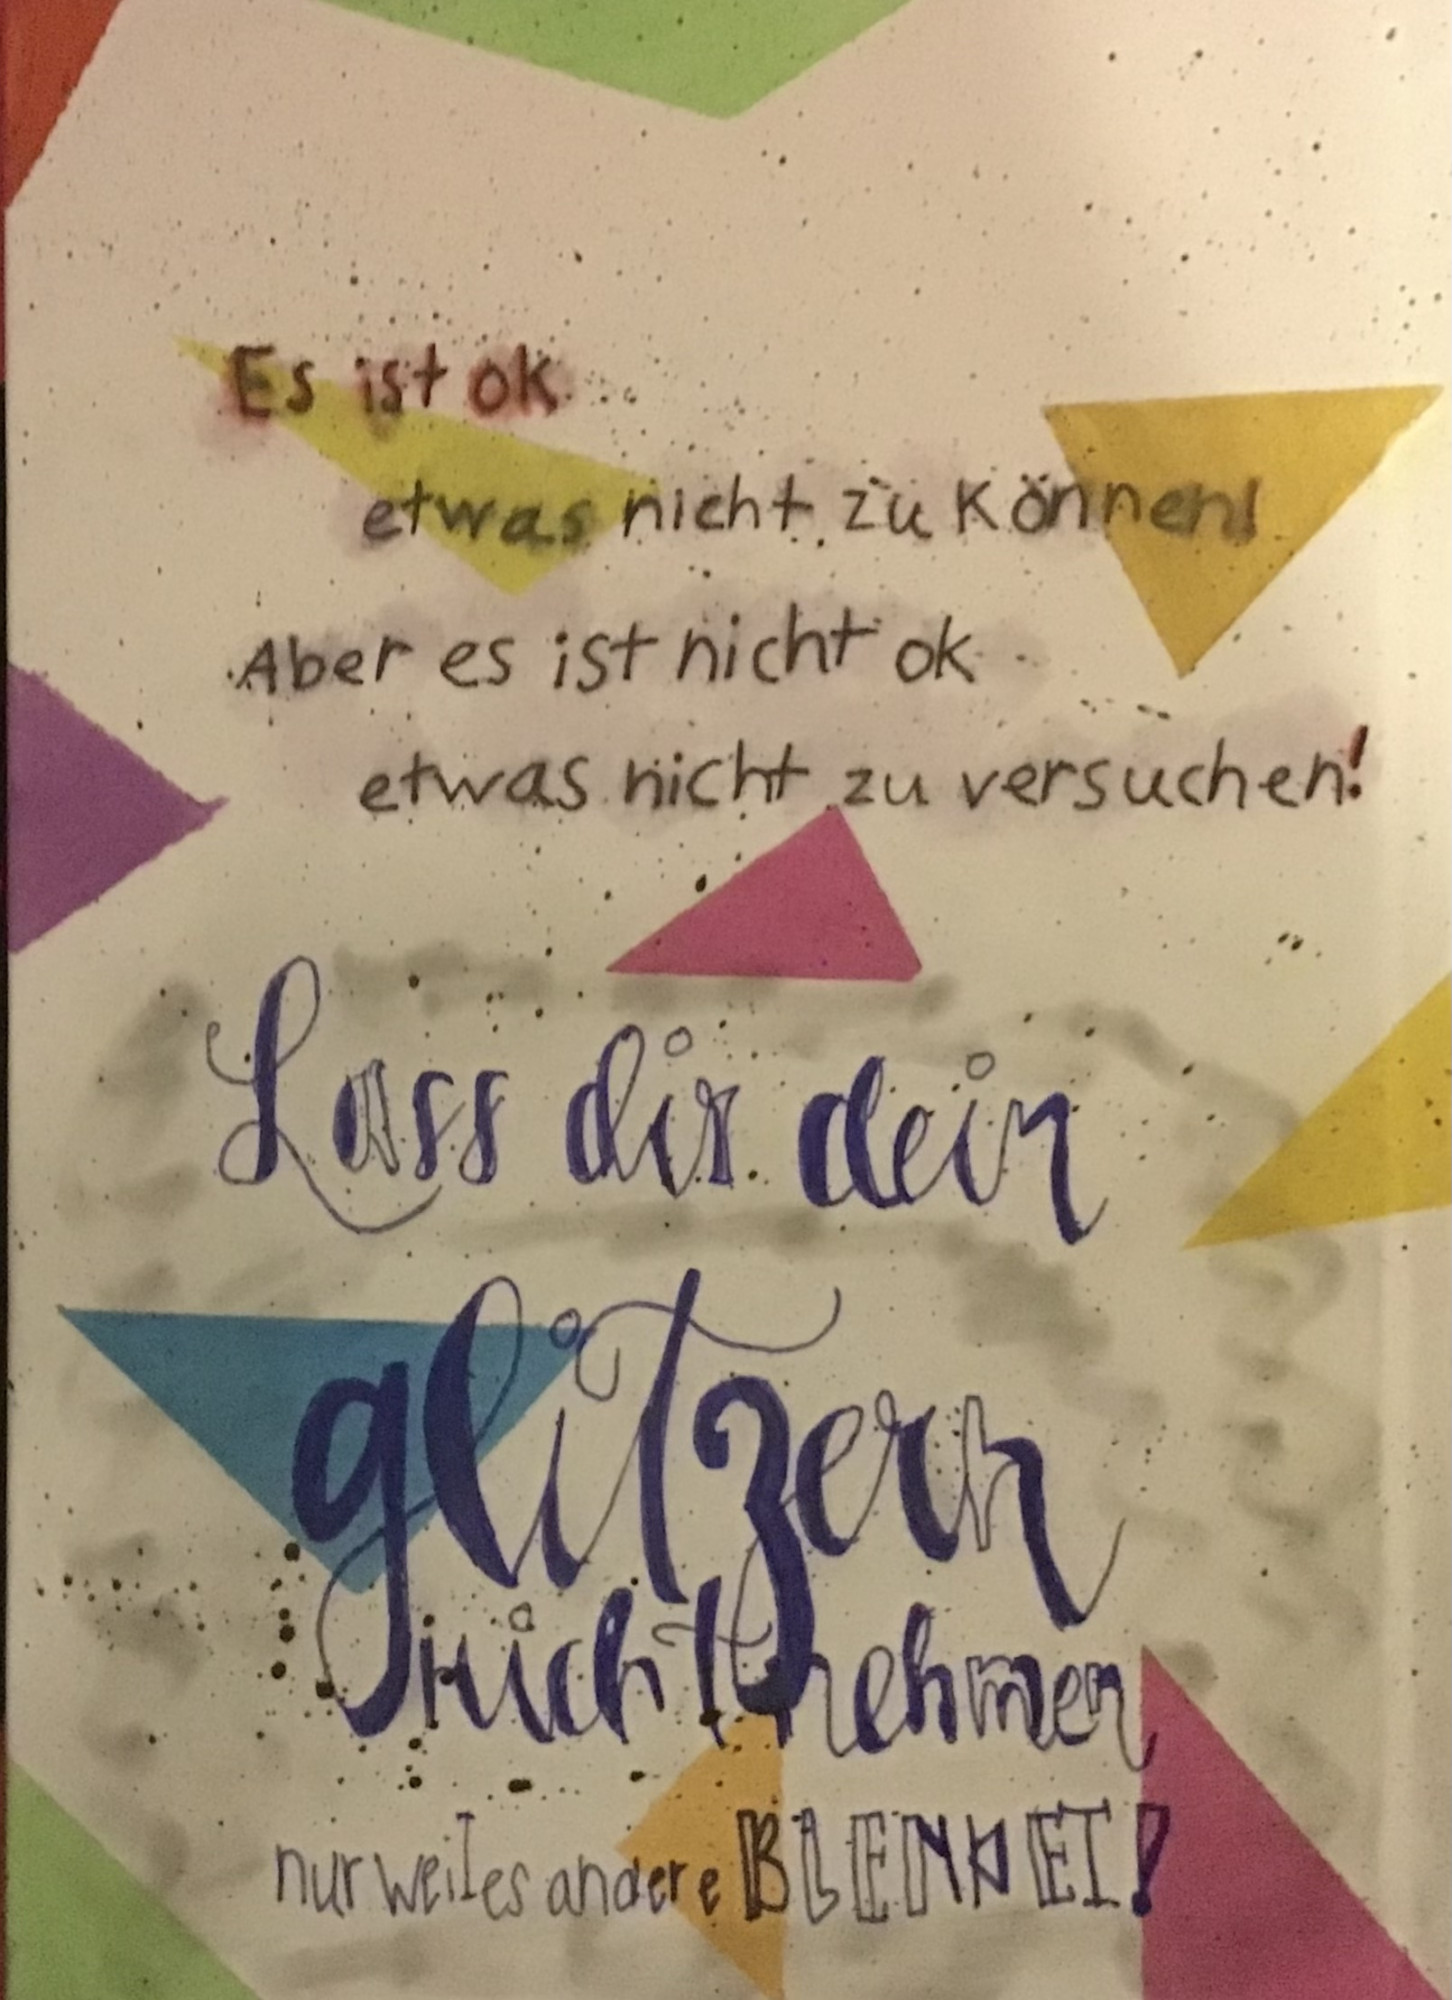 Es ist ok
etwas nicht zu können!
Aber es ist nicht ok
etwas nicht zu versuchen!
Lass dir dein
glitzern
nicht nehmen
nur weil es andere BLENDET!